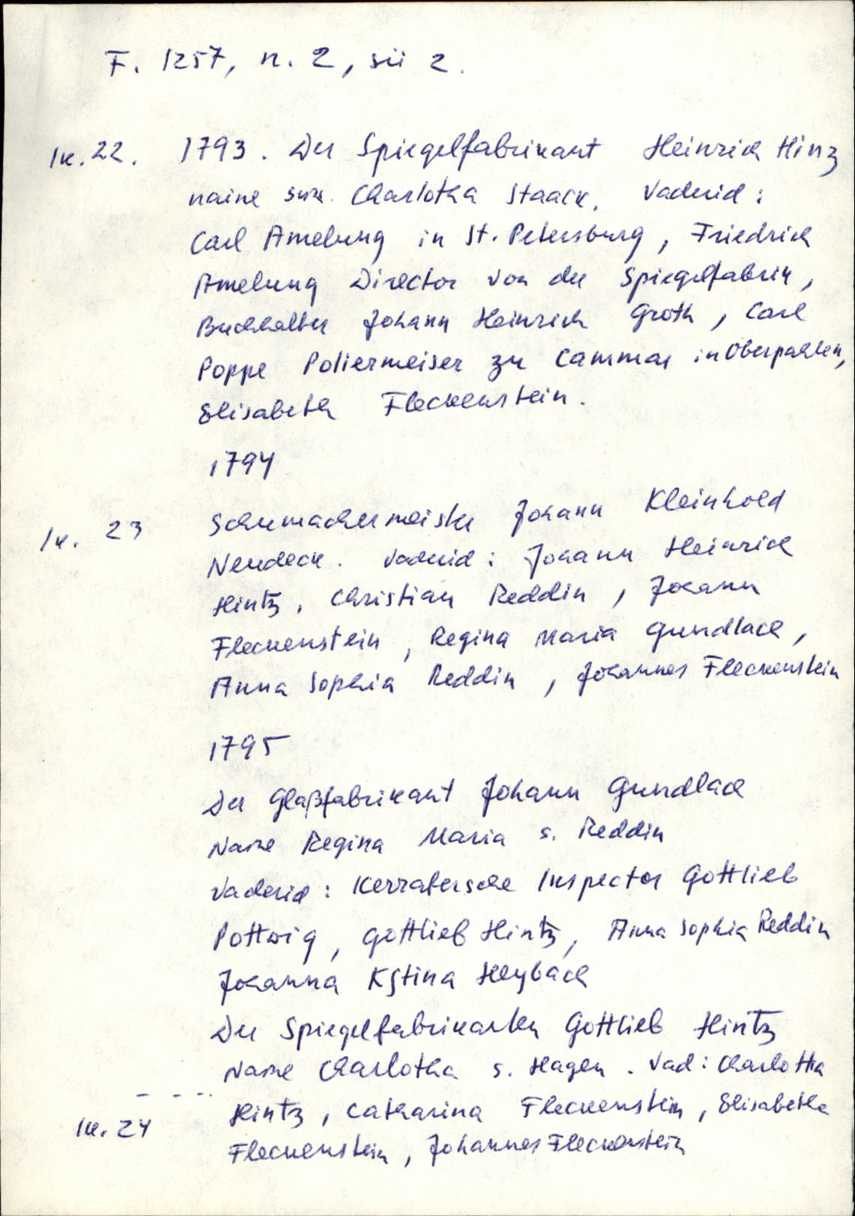 F. 1257, n. 2, sü 2.
lk. 22. 1793. Der Spiegelfabrikant Heinrich Hinz
naine sün. Charlotha Staack. Vaderid:
Carl Amelung in St. Petersburg, Friedrich
Amelung Director von der Spiegelfabrik,
Buchhalter Johann Heinrich Groth, Carl
Poppe Poliermeiser zu Cammar in Oberpahlen,
Elisabeth Fleckenstein.
1794
lk. 23 Schumachermeister Johann Kleinhold
Neudeck. Vaderid: Johann Heinrich
Hintz, Christian Reddin, Johann
Fleckenstein, Regina Maria Gundlach,
Anna Sophia Reddin, Johannes Fleckenstein
1795
Der Glaßfabrikant Johann Gundlach
Naine Regina Maria s. Reddin
Vaderid: Kerrafersche Inspector Gottlieb
Pottwig, Gottlieb Hintz, Anna Sophia Reddin
Johanna Kstina Heybach
Der Spiegelfabrikanten Gottlieb Hintz
Naine Charlotha s. Hagen. Vad: Charlotha
lk. 24 Hintz, Catharina Fleckenstein, Elisabetha
Fleckenstein, Johannes Fleckenstein